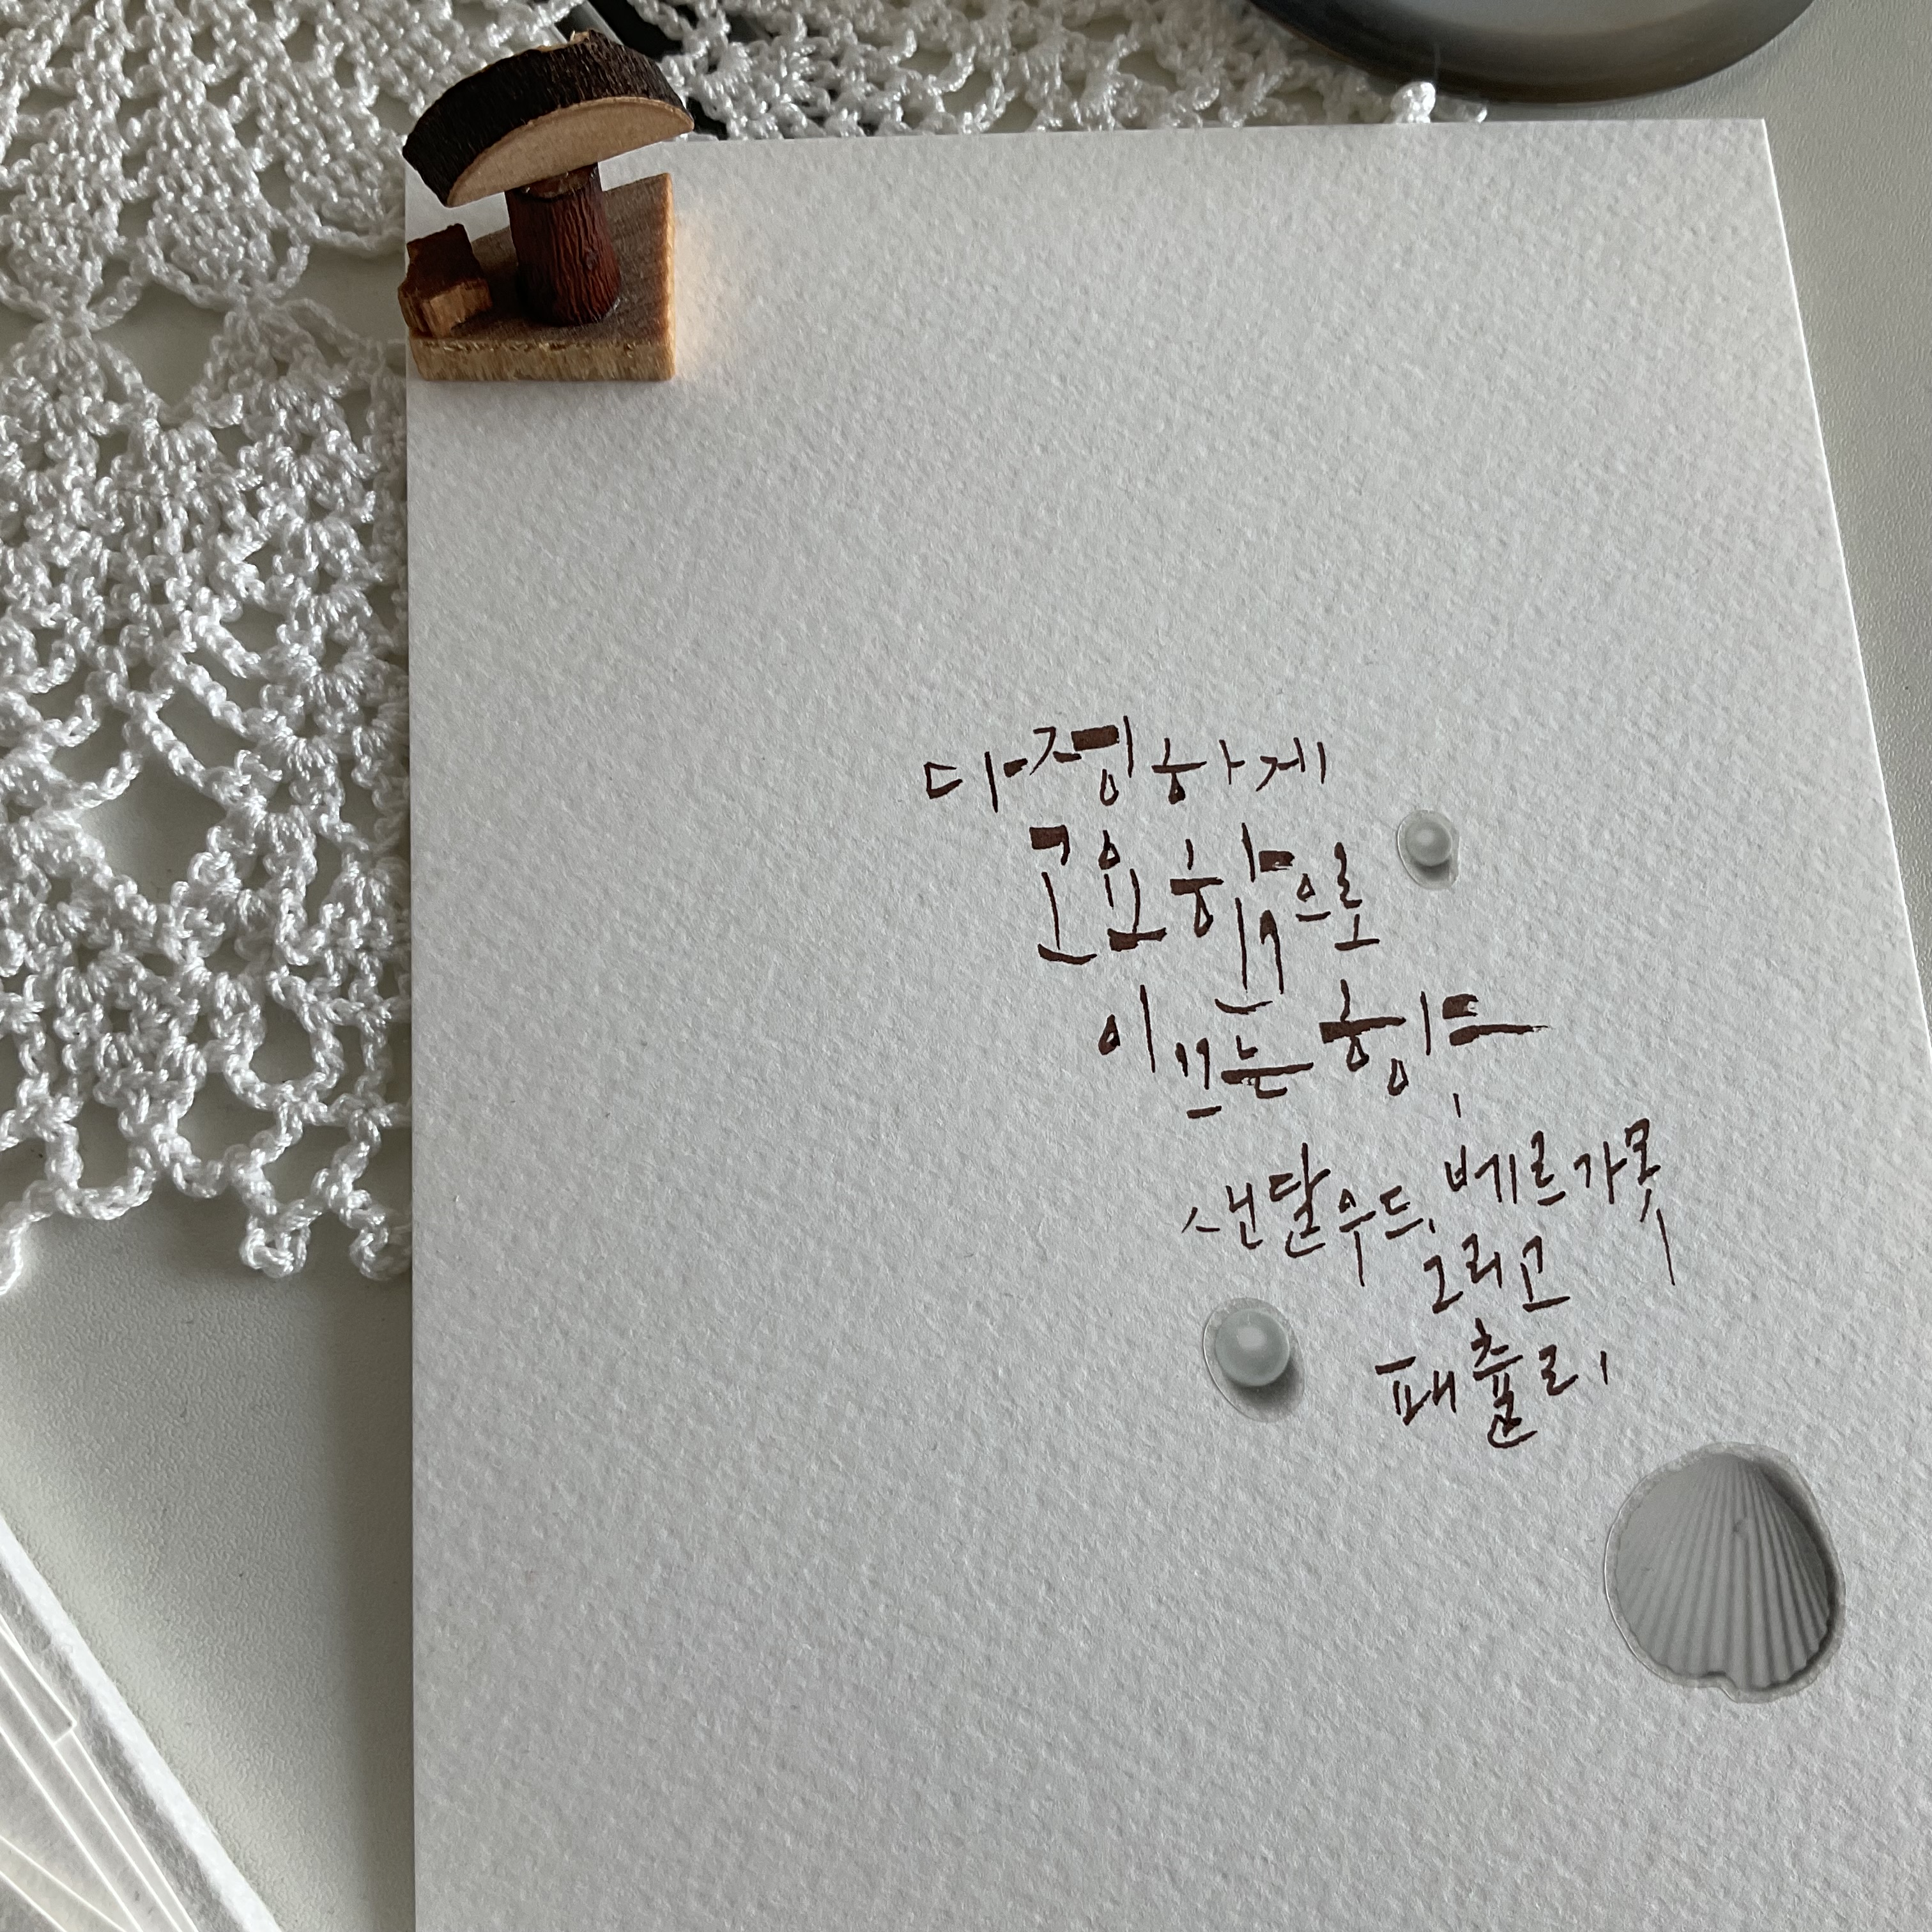 다정하게
고요함으로
이끄는 향,
샌달우드, 베르가못
그리고
패츌리